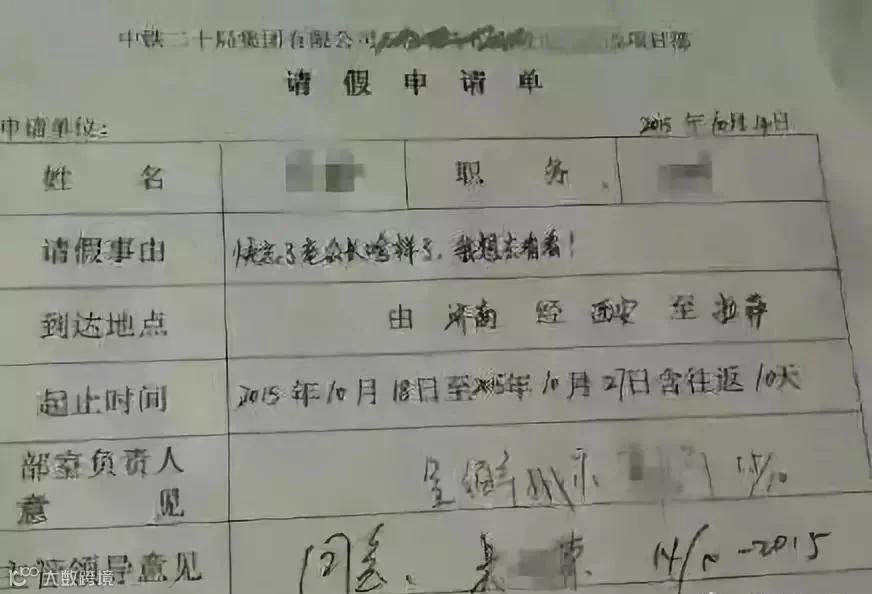 中铁二十局集团有限公司 项目部
请假申请单
申请单位: 2015年10月14日
姓名 职务
请假事由 快忘了老公长啥样了，我想去看看!
到达地点 由 济南 经 西安 至 拉萨
起止时间 2015年10月18日至2015年10月27日含往返10天
部室负责人
意见
领导意见 同意. 14/10-2015
大数跨境